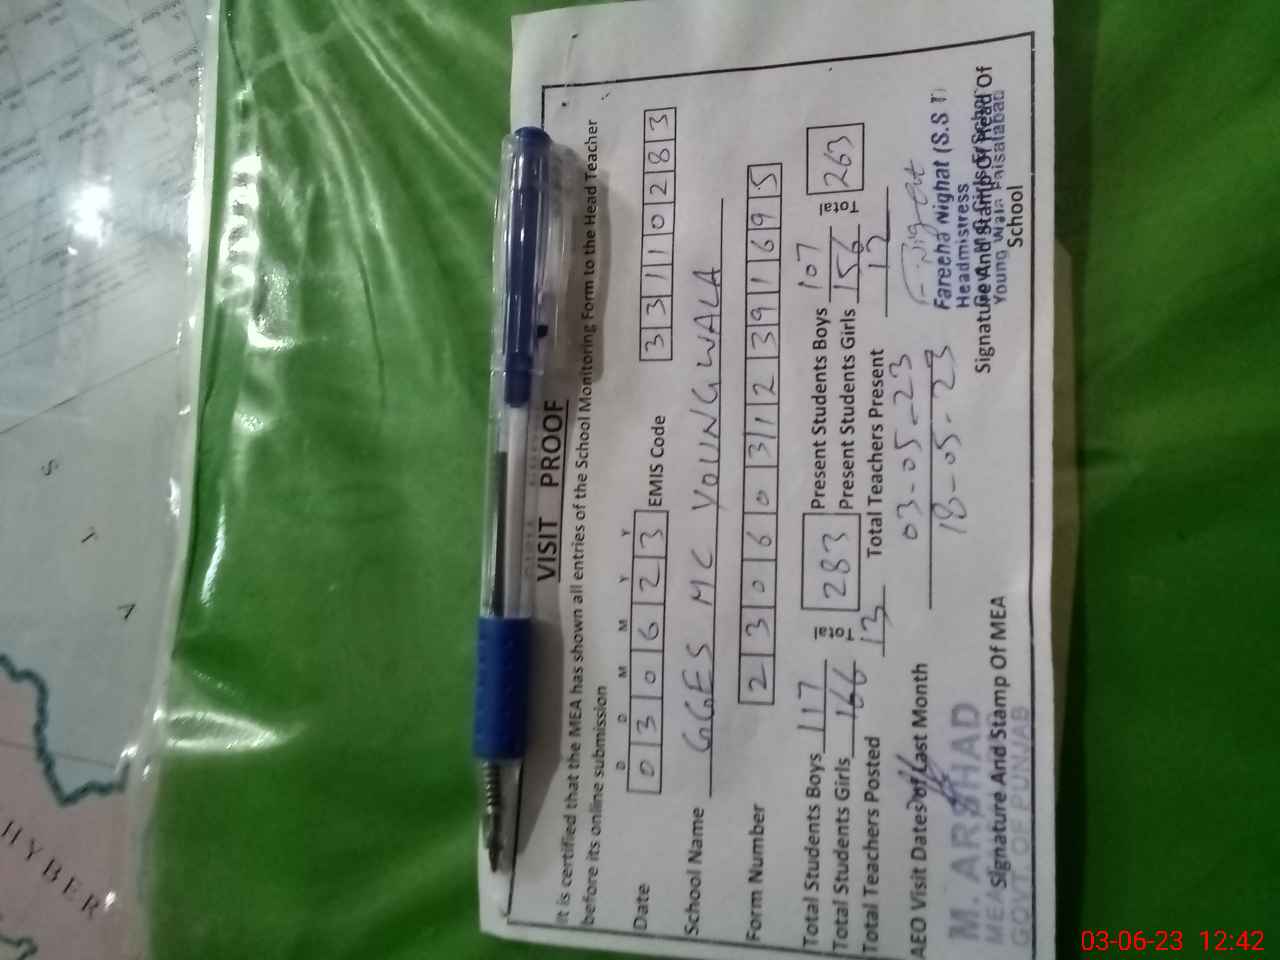 VISIT PROOF
It is certified that the MEA has shown all entries of the School Monitoring Form to the Head Teacher
before its online submission
D D M M Y Y
Date 0 3 0 6 2 3 EMIS Code 3 3 1 1 0 2 8 3
School Name GGES MC YOUNGWALA
Form Number 2 3 0 6 0 3 1 2 3 9 1 6 9 5
Total Students Boys 117 Total 283 Present Students Boys 107 Total 263
Total Students Girls 166 Present Students Girls 156
Total Teachers Posted 13 Total Teachers Present 12
AEO Visit Dates of Last Month 03-05-23
18-05-23
M. ARSHAD
MEA
Signature And Stamp Of MEA
GOVT. OF PUNJAB
Fareeha Nighat (S.S
Headmistress
Signature And Stamp Of Head Of
School
Young Wala Faisalabad
KHYBER
S
T
A
03-06-23 12:42